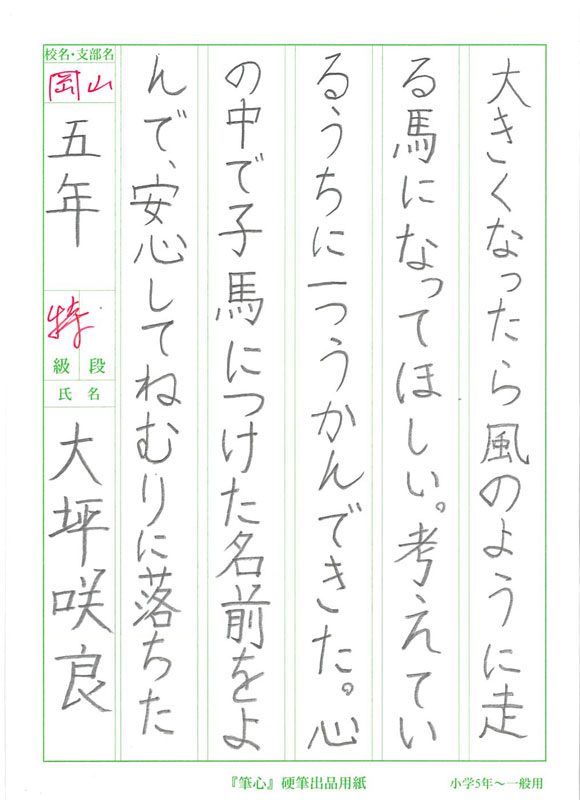 大きくなったら風のように走
る馬になってほしい。考えてい
るうちに一つうかんできた。心
の中で子馬につけた名前をよ
んで、安心してねむりに落ちた
校名・支部名
岡山
五年
特
級 段
氏 名
大坪咲良
『筆心』硬筆出品用紙
小学5年〜一般用